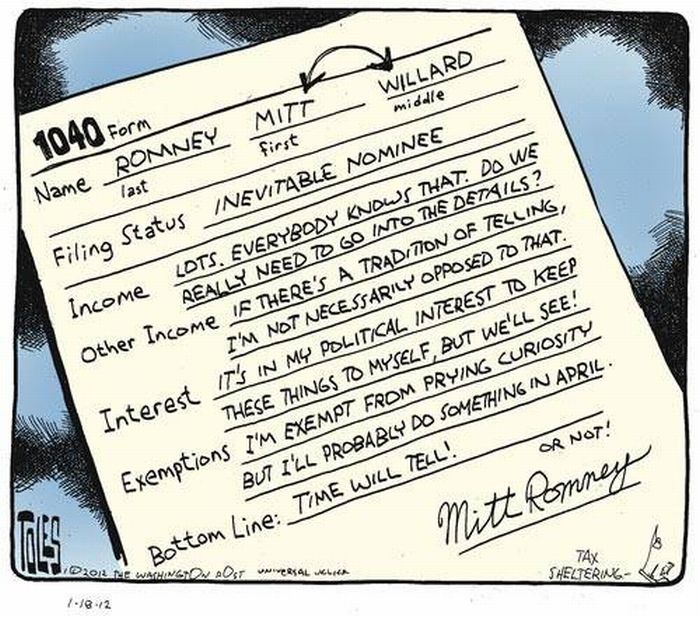 1040 Form
Name ROMNEY MITT WILLARD
last first middle
Filing Status INEVITABLE NOMINEE
Income LOTS. EVERYBODY KNOWS THAT. DO WE
REALLY NEED TO GO INTO THE DETAILS?
Other Income IF THERE'S A TRADITION OF TELLING,
I'M NOT NECESSARILY OPPOSED TO THAT.
Interest IT'S IN MY POLITICAL INTEREST TO KEEP
THESE THINGS TO MYSELF, BUT WE'LL SEE!
Exemptions I'M EXEMPT FROM PRYING CURIOSITY
BUT I'LL PROBABLY DO SOMETHING IN APRIL.
Bottom Line: TIME WILL TELL! OR NOT!
Mitt Romney
TOLES
©2012 THE WASHINGTON POST UNIVERSAL UCLICK
TAX
SHELTERING-
1-18-12